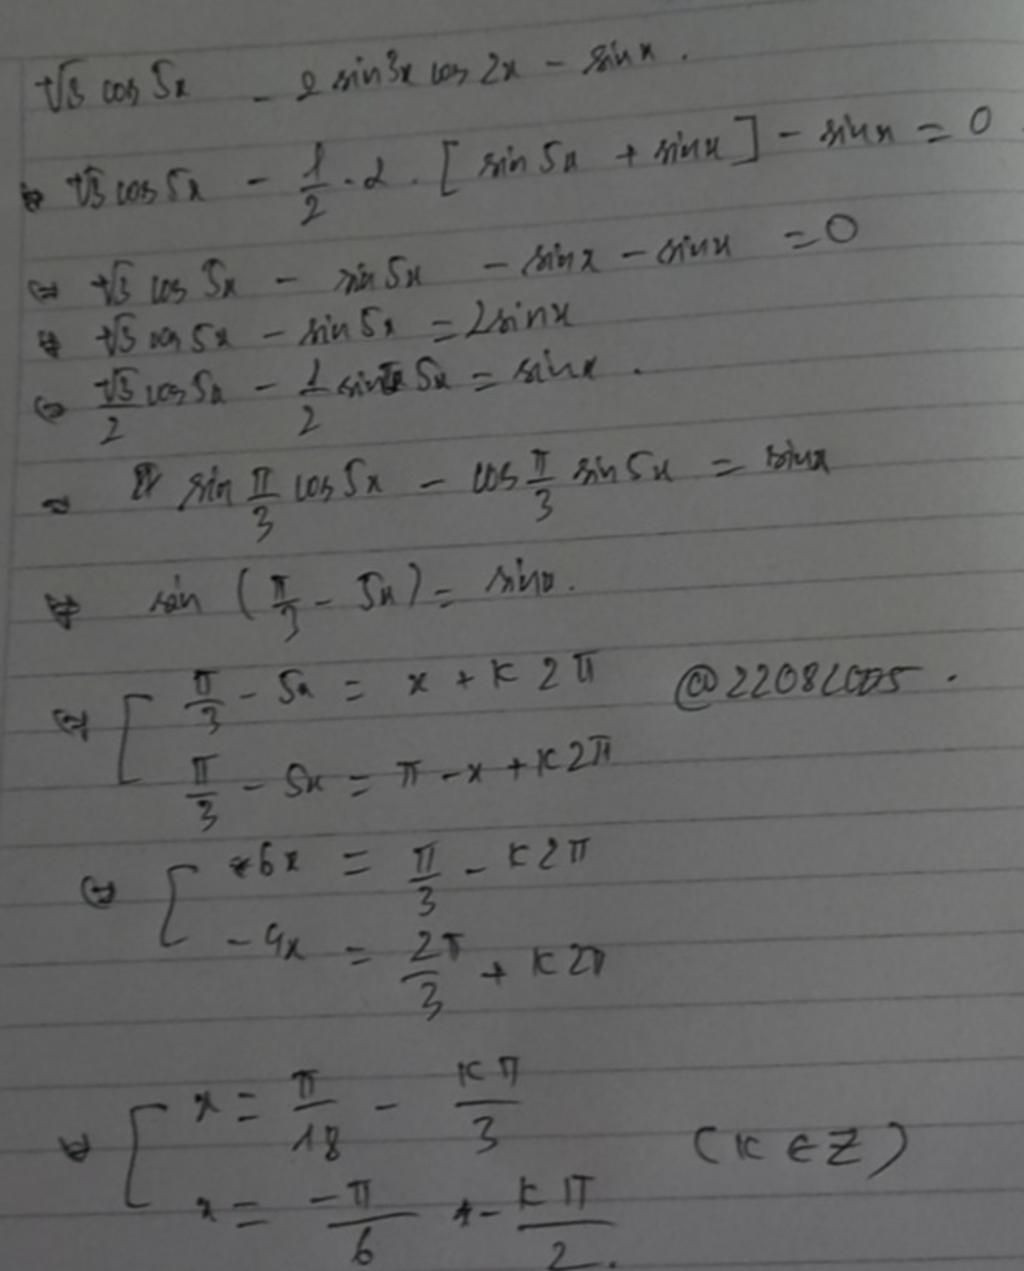 √3 cos 5x - 2 sin 3x cos 2x - sin x.
⇔ √3 cos 5x - 1/2 . 2 . [ sin 5x + sin x ] - sin x = 0
⇔ √3 cos 5x - sin 5x - sin x - sin x = 0
⇔ √3 cos 5x - sin 5x = 2 sin x
⇔ √3/2 cos 5x - 1/2 sin 5x = sin x .
⇔ sin π/3 cos 5x - cos π/3 sin 5x = sin x
⇔ sin ( π/3 - 5x ) = sin x.
⇔ [ π/3 - 5x = x + k2π @22082005 .
π/3 - 5x = π - x + k2π
⇔ [ 6x = π/3 - k2π
-4x = 2π/3 + k2π
⇔ [ x = π/18 - kπ/3 (k ∈ Z)
x = -π/6 - kπ/2 .